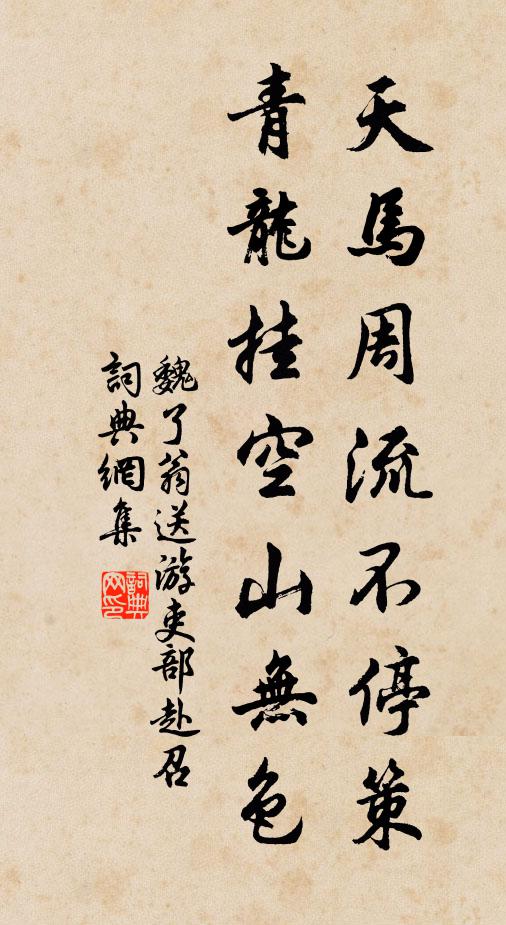 天馬周流不停策
青龍挂空山無色
魏了翁送游吏部赴召
詞典網集
詞典网印